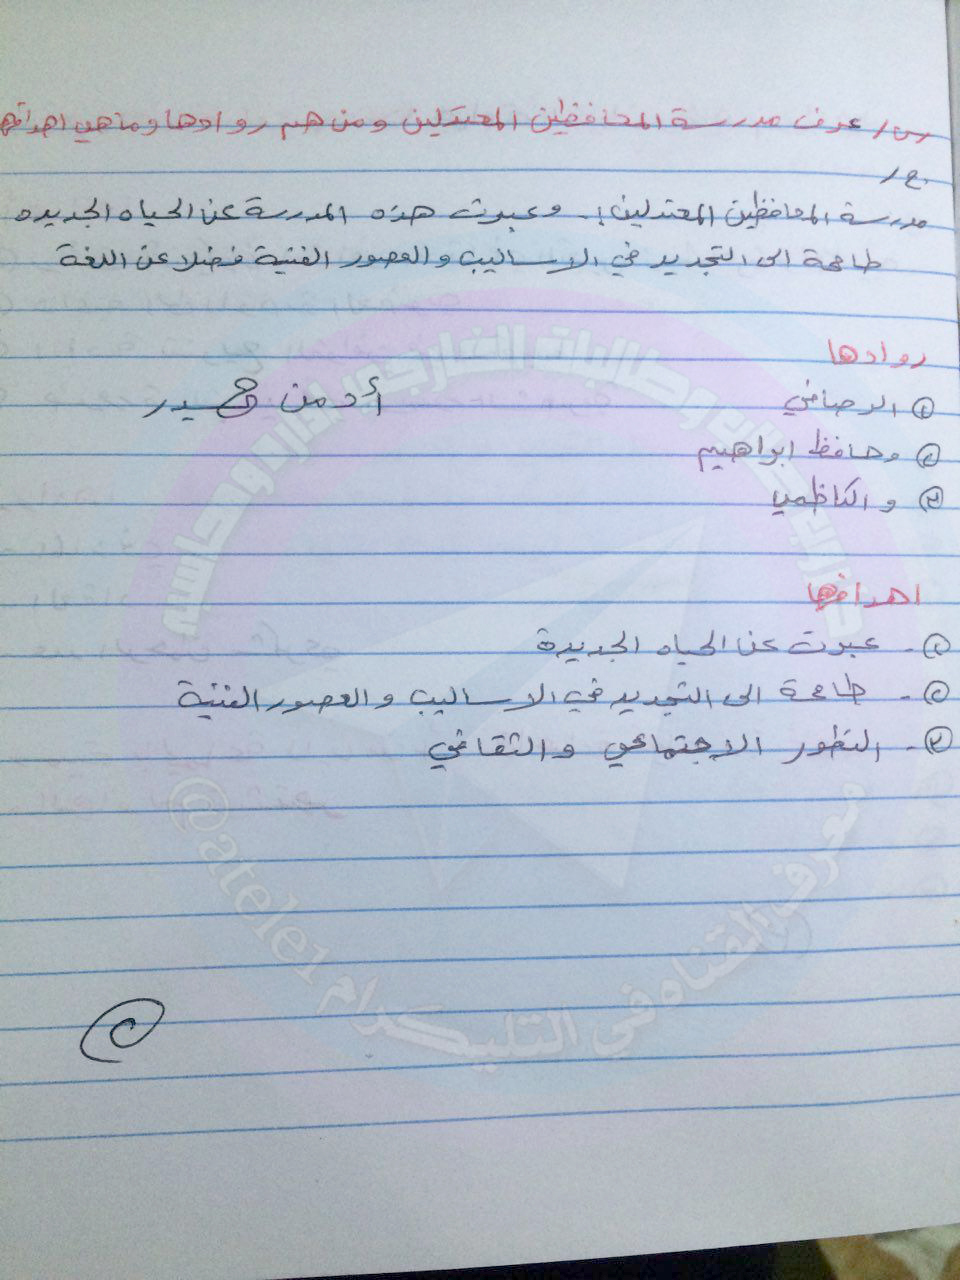 س/ عرف مدرسة المحافظين المعتدلين ومن هم روادها وماهي اهدافها
ج/
مدرسة المحافظين المعتدلين :. وعبرت هذه المدرسة عن الحياه الجديده
طامحة الى التجديد في الاساليب والصور الفنية فضلا عن اللغة
روادها
① الرصافي
أدمن حيدر
② وحافظ ابراهيم
③ والكاظمي
اهدافها
①. عبرت عن الحياه الجديدة
②. طامحة الى التجديد في الاساليب والصور الفنية
③. التطور الاجتماعي والثقافي
معرف القناه في التليكرام @atele1